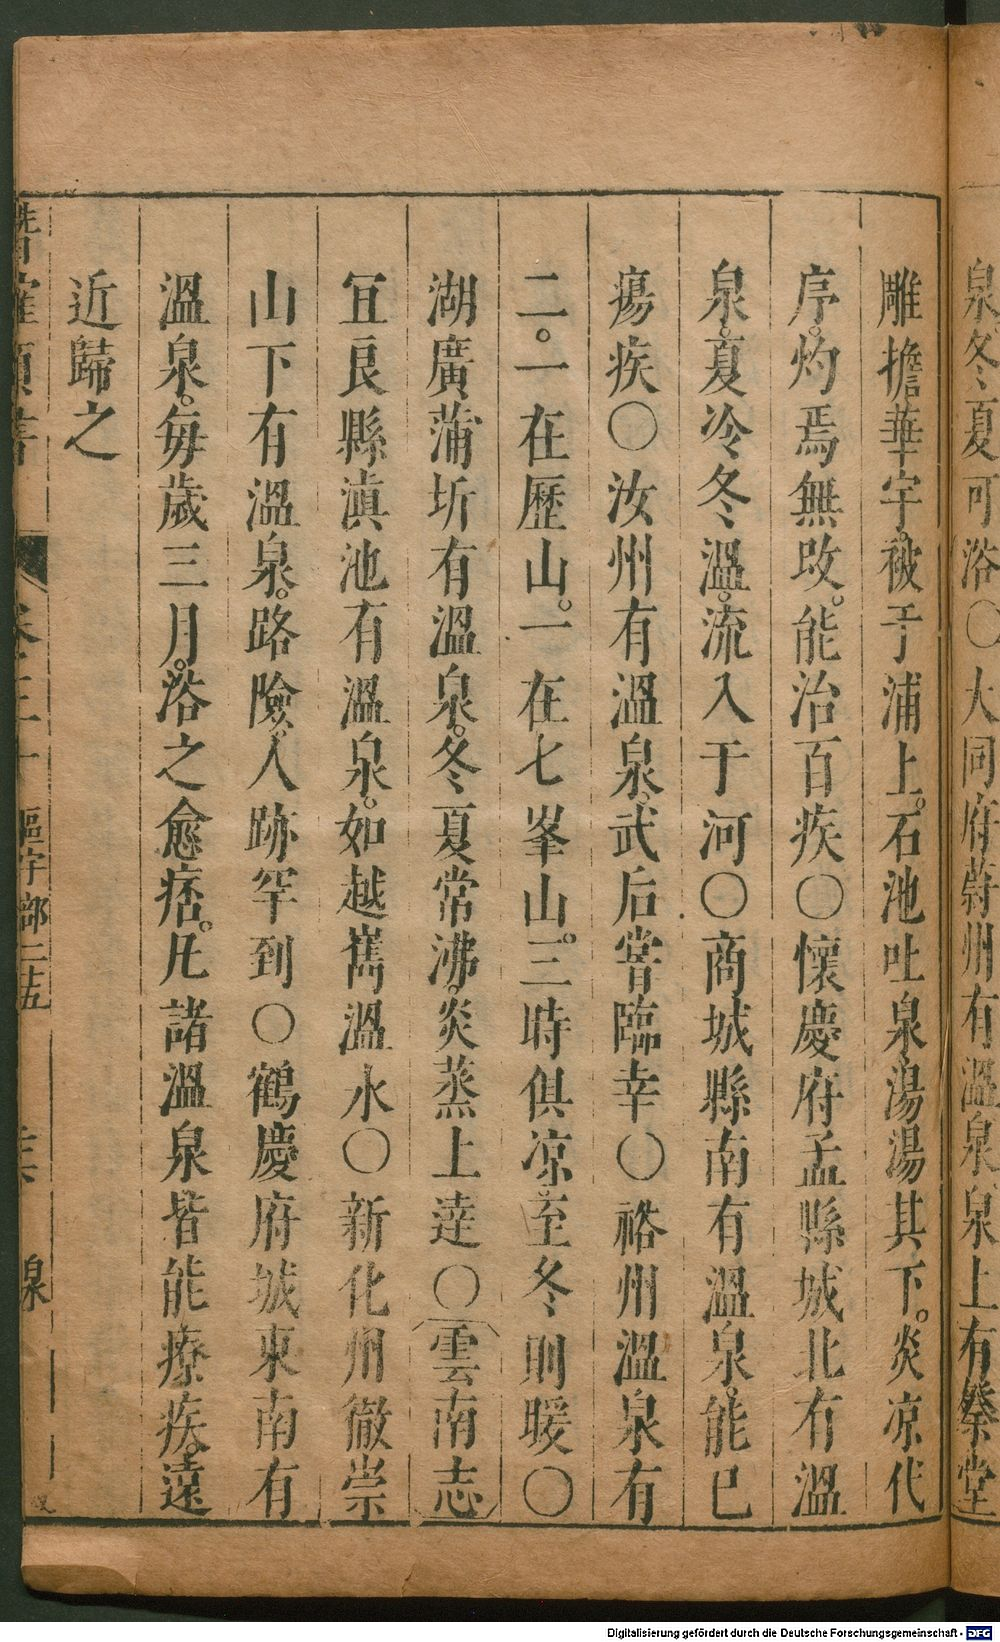 泉冬夏可浴〇大同府蔚州有溫泉泉上有叅堂
雕擔華宇。被于浦上。石池吐泉湯湯其下。炎凉代
序。灼焉無改。能治百疾〇懷慶府孟縣城北有溫
泉。夏冷冬溫。流入于河〇商城縣南有溫泉。能已
瘍疾〇汝州有溫泉。武后嘗臨幸〇裕州溫泉有
二。一在歷山。一在七峯山。三時俱凉。至冬則暖〇
湖廣蒲圻有溫泉。冬夏常沸。炎蒸上達〇雲南志
冝良縣滇池有溫泉。如越嶲溫水〇新化州徹崇
山下有溫泉。路險。人跡罕到〇鶴慶府城東南有
溫泉。每歲三月。浴之愈痞。凡諸溫泉皆能療疾。遠
近歸之
潛確類書 卷三十 區宇部二五 泉
Digitalisierung gefördert durch die Deutsche Forschungsgemeinschaft - DFG